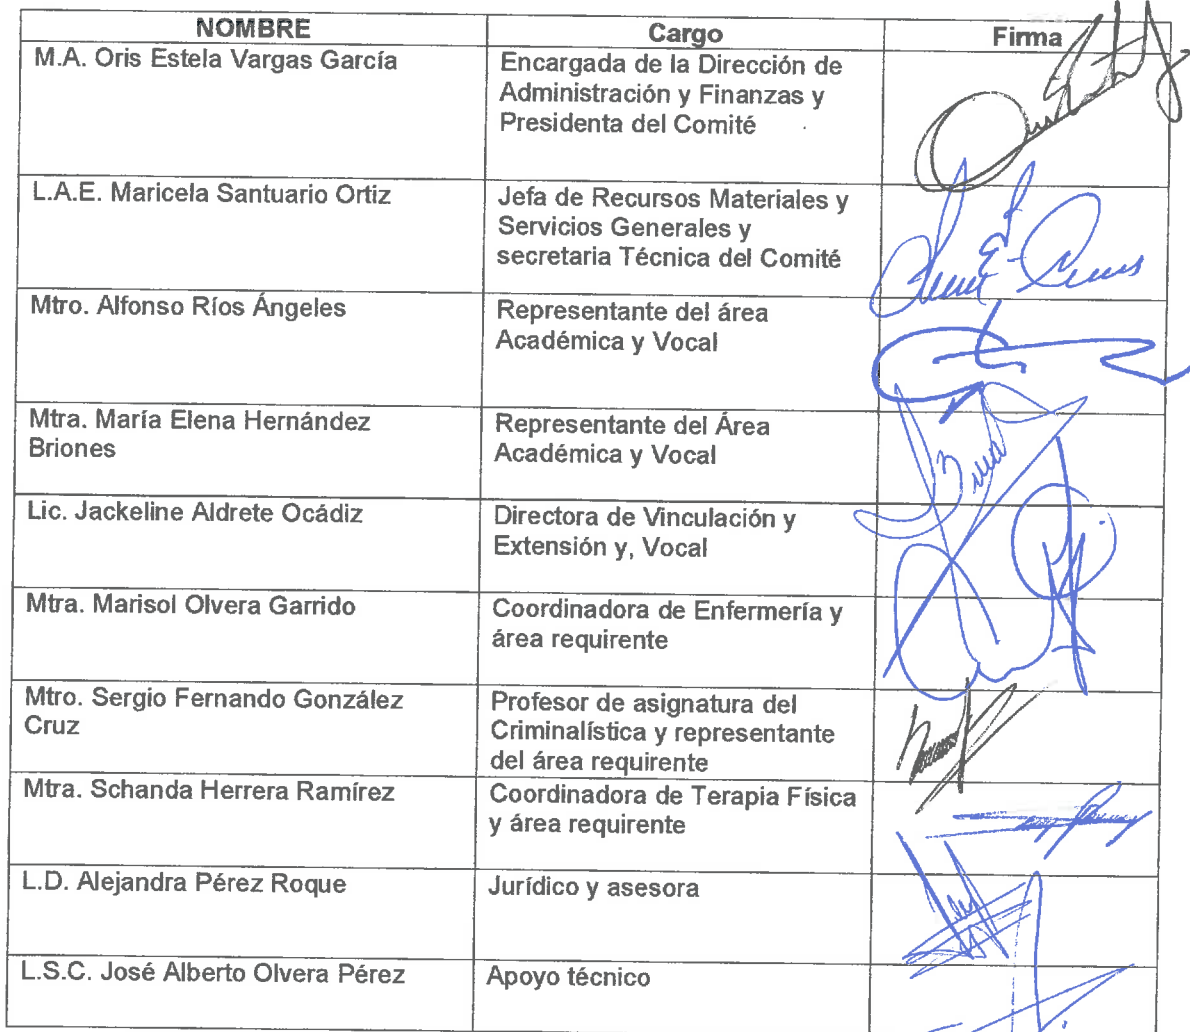 NOMBRE Cargo Firma
M.A. Oris Estela Vargas García
Encargada de la Dirección de
Administración y Finanzas y
Presidenta del Comité
L.A.E. Maricela Santuario Ortiz
Jefa de Recursos Materiales y
Servicios Generales y
secretaria Técnica del Comité
Mtro. Alfonso Ríos Ángeles
Representante del área
Académica y Vocal
Mtra. María Elena Hernández
Briones
Representante del Área
Académica y Vocal
Lic. Jackeline Aldrete Ocádiz
Directora de Vinculación y
Extensión y, Vocal
Mtra. Marisol Olvera Garrido
Coordinadora de Enfermería y
área requirente
Mtro. Sergio Fernando González
Cruz
Profesor de asignatura del
Criminalística y representante
del área requirente
Mtra. Schanda Herrera Ramírez
Coordinadora de Terapia Física
y área requirente
L.D. Alejandra Pérez Roque
Jurídico y asesora
L.S.C. José Alberto Olvera Pérez
Apoyo técnico